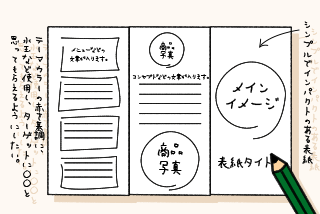 シンプルでインパクトのある表紙
メニューなどの
文章が入ります。
商品
写真
コンセプトなどの文章が入ります。
商品
写真
メイン
イメージ
表紙タイト
テーマカラーの赤を基調に、
水玉など使用し、ターゲットに〇〇と
思ってもらえるようにしたい。